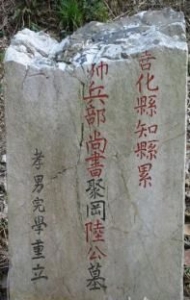 化縣知縣累
帥兵部尚書聚岡陸公墓
孝男完學重立